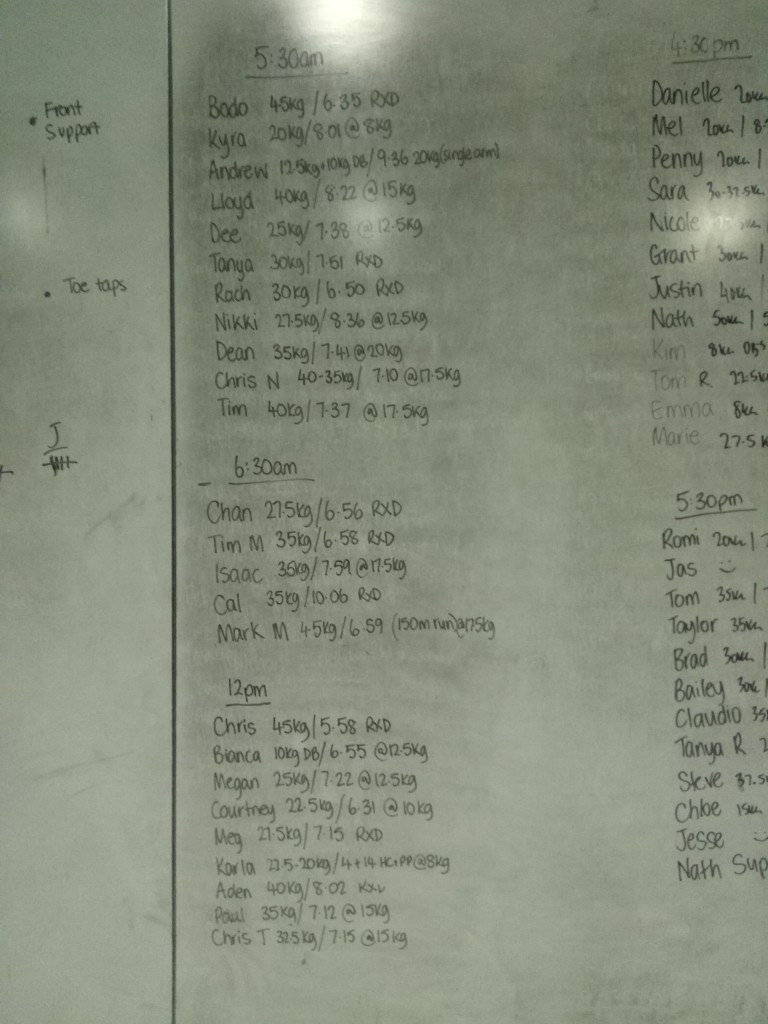 • Front
Support
• Toe taps
J
5:30am
Bodo 45kg/6.35 RXD
Kyra 20kg/8.01@8kg
Andrew 12.5kg+10kg DB/9.36 20kg(single arm)
Lloyd 40kg/8.22@15kg
Dee 25kg/7.38@12.5kg
Tanya 30kg/7.51 RXD
Rach 30kg/6.50 RXD
Nikki 27.5kg/8.36@12.5kg
Dean 35kg/7.41@20kg
Chris N 40-35kg/7.10@17.5kg
Tim 40kg/7.37 @17.5kg
6:30am
Chan 27.5kg/6.56 RXD
Tim M 35kg/6.58 RXD
Isaac 35kg/7.59@17.5kg
Cal 35kg/10.06 RXD
Mark M 45kg/6.59 (150m run)@17.5kg
12pm
Chris 45kg/5.58 RXD
Bianca 10kg DB/6.55 @12.5kg
Megan 25kg/7.22@12.5kg
Courtney 22.5kg/6.31 @10kg
Meg 27.5kg/7.15 RXD
Karla 22.5-20kg/4+14 HC+PP@8kg
Aden 40kg/8.02 RXD
Paul 35kg/7.12@15kg
Chris T 32.5kg/7.15@15kg
4:30pm
Danielle 20kg
Mel 20kg / 8
Penny 20kg /
Sara 30-37.5kg
Nicole
Grant 30kg /
Justin 40kg /
Nath 50kg / 5
Kim 8kg DB's
Tom R 22.5k
Emma 8kg
Marie 27.5k
5:30pm
Romi 20kg / 7
Jas :)
Tom 35kg / 7
Taylor 35kg
Brad 30kg /
Bailey 30kg /
Claudio 35
Tanya R 2
Steve 37.5
Chloe 15kg
Jesse
Nath Sup